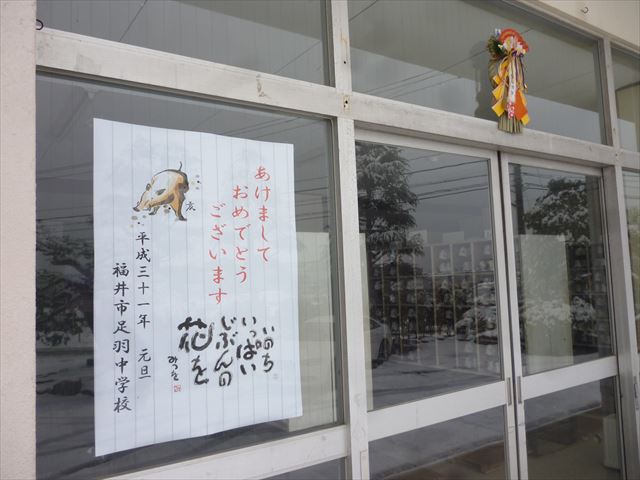 あけまして
おめでとう
ございます
いのち
いっぱい
じぶんの
花を
みつを
亥
平成三十一年 元旦
福井市足羽中学校